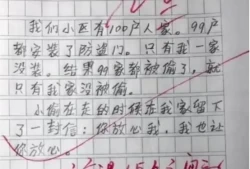 我们小区有100户人家。99户
都安装了防盗门。只有我一家
没装。结果99家都被偷了，就
只有我家没被偷。
小偷在走的时候在我家留下
了一封信：你放心我，我也让
你放心。